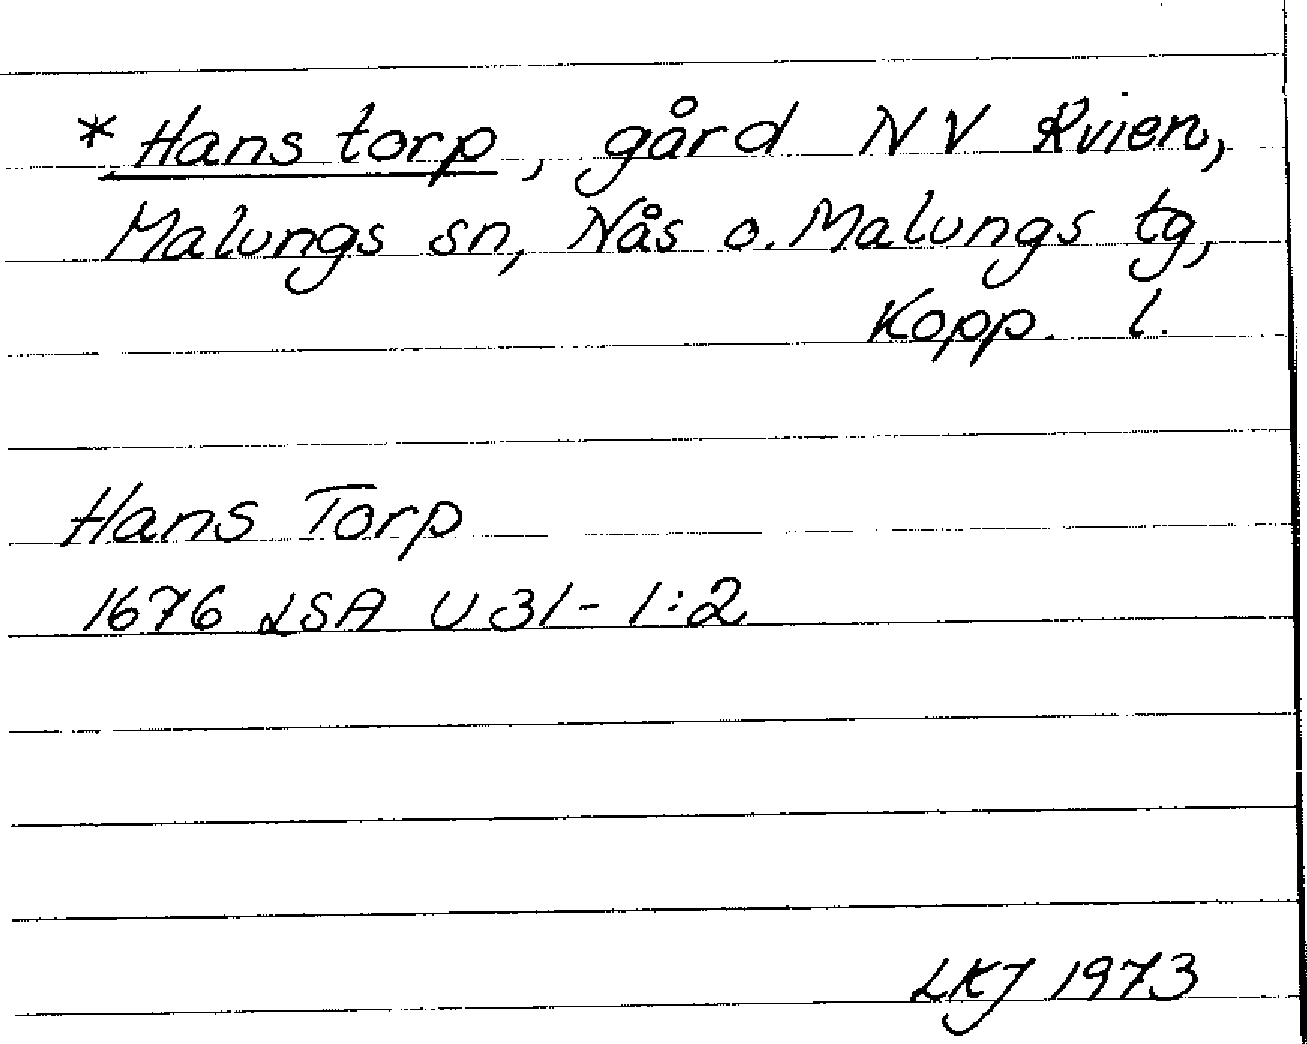 * Hans torp, gård NV Kvien,
Malungs sn, Nås o. Malungs tg,
Kopp. l.
Hans Torp
1676 LSA U 31-1:2
LKJ 1973